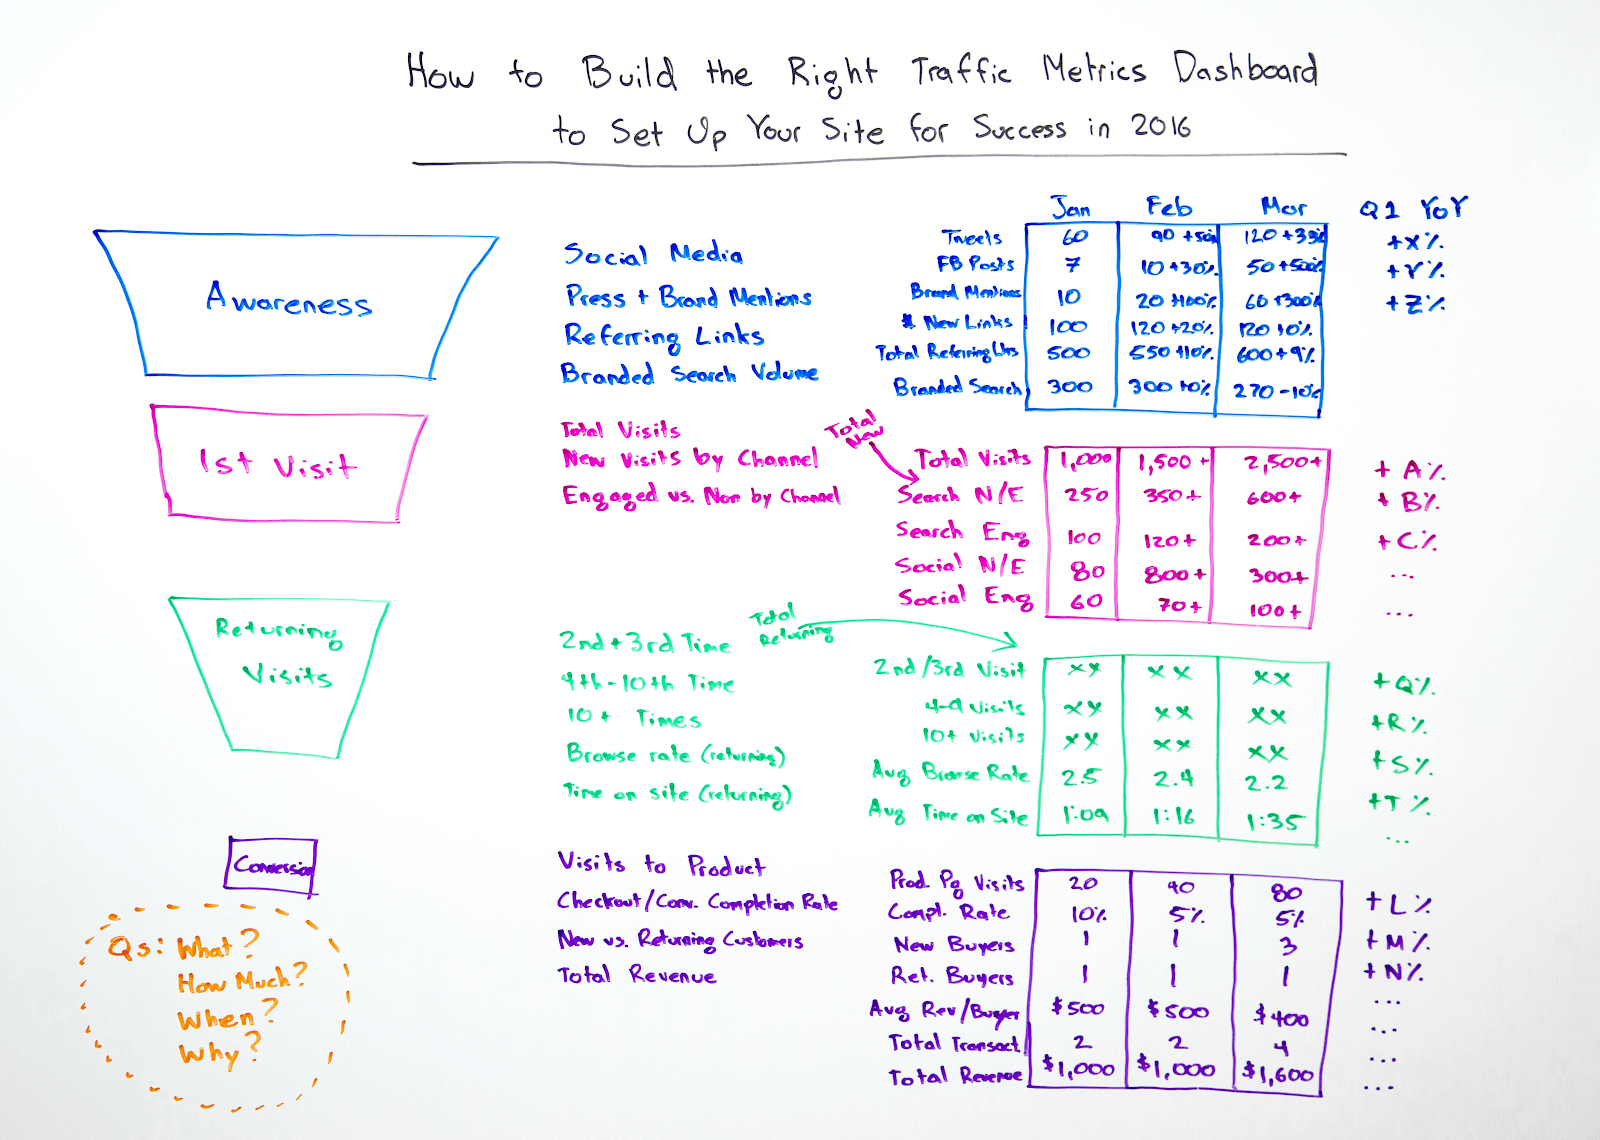 How to Build the Right Traffic Metrics Dashboard
to Set Up Your Site for Success in 2016
Jan Feb Mar Q1 YoY
Awareness
Social Media
Press + Brand Mentions
Referring Links
Branded Search Volume
Tweets 60 90 +50% 120 +33% +X%
FB Posts 7 10 +30% 50 +500% +Y%
Brand Mentions 10 20 +100% 60 +300% +Z%
# New Links 100 120 +20% 120 +0%
Total Referring Lks 500 550 +10% 600 +9%
Branded Search 300 300 +0% 270 -10%
1st Visit
Total Visits
New Visits by Channel
Engaged vs. Non by Channel
Total
New
Total Visits 1,000 1,500 + 2,500 + + A%
Search N/E 250 350 + 600 + + B%
Search Eng 100 120 + 200 + + C%
Social N/E 80 800 + 300 + ...
Social Eng 60 70 + 100 + ...
Returning
Visits
2nd + 3rd Time
4th - 10th Time
10+ Times
Browse rate (returning)
Time on site (returning)
Total
Returning
2nd/3rd Visit xx xx xx +Q%
4-9 Visits xx xx xx +R%
10+ Visits xx xx xx +S%
Avg Browse Rate 2.5 2.4 2.2 +T%
Avg Time on Site 1:09 1:16 1:35 ...
Conversion
Visits to Product
Checkout/Conv. Completion Rate
New vs. Returning Customers
Total Revenue
Prod. Pg Visits 20 40 80 + L%
Compl. Rate 10% 5% 5% + M%
New Buyers 1 1 3 + N%
Ret. Buyers 1 1 1 ...
Avg Rev/Buyer $500 $500 $400 ...
Total Transact. 2 2 4 ...
Total Revenue $1,000 $1,000 $1,600 ...
Qs: What?
How Much?
When?
Why?